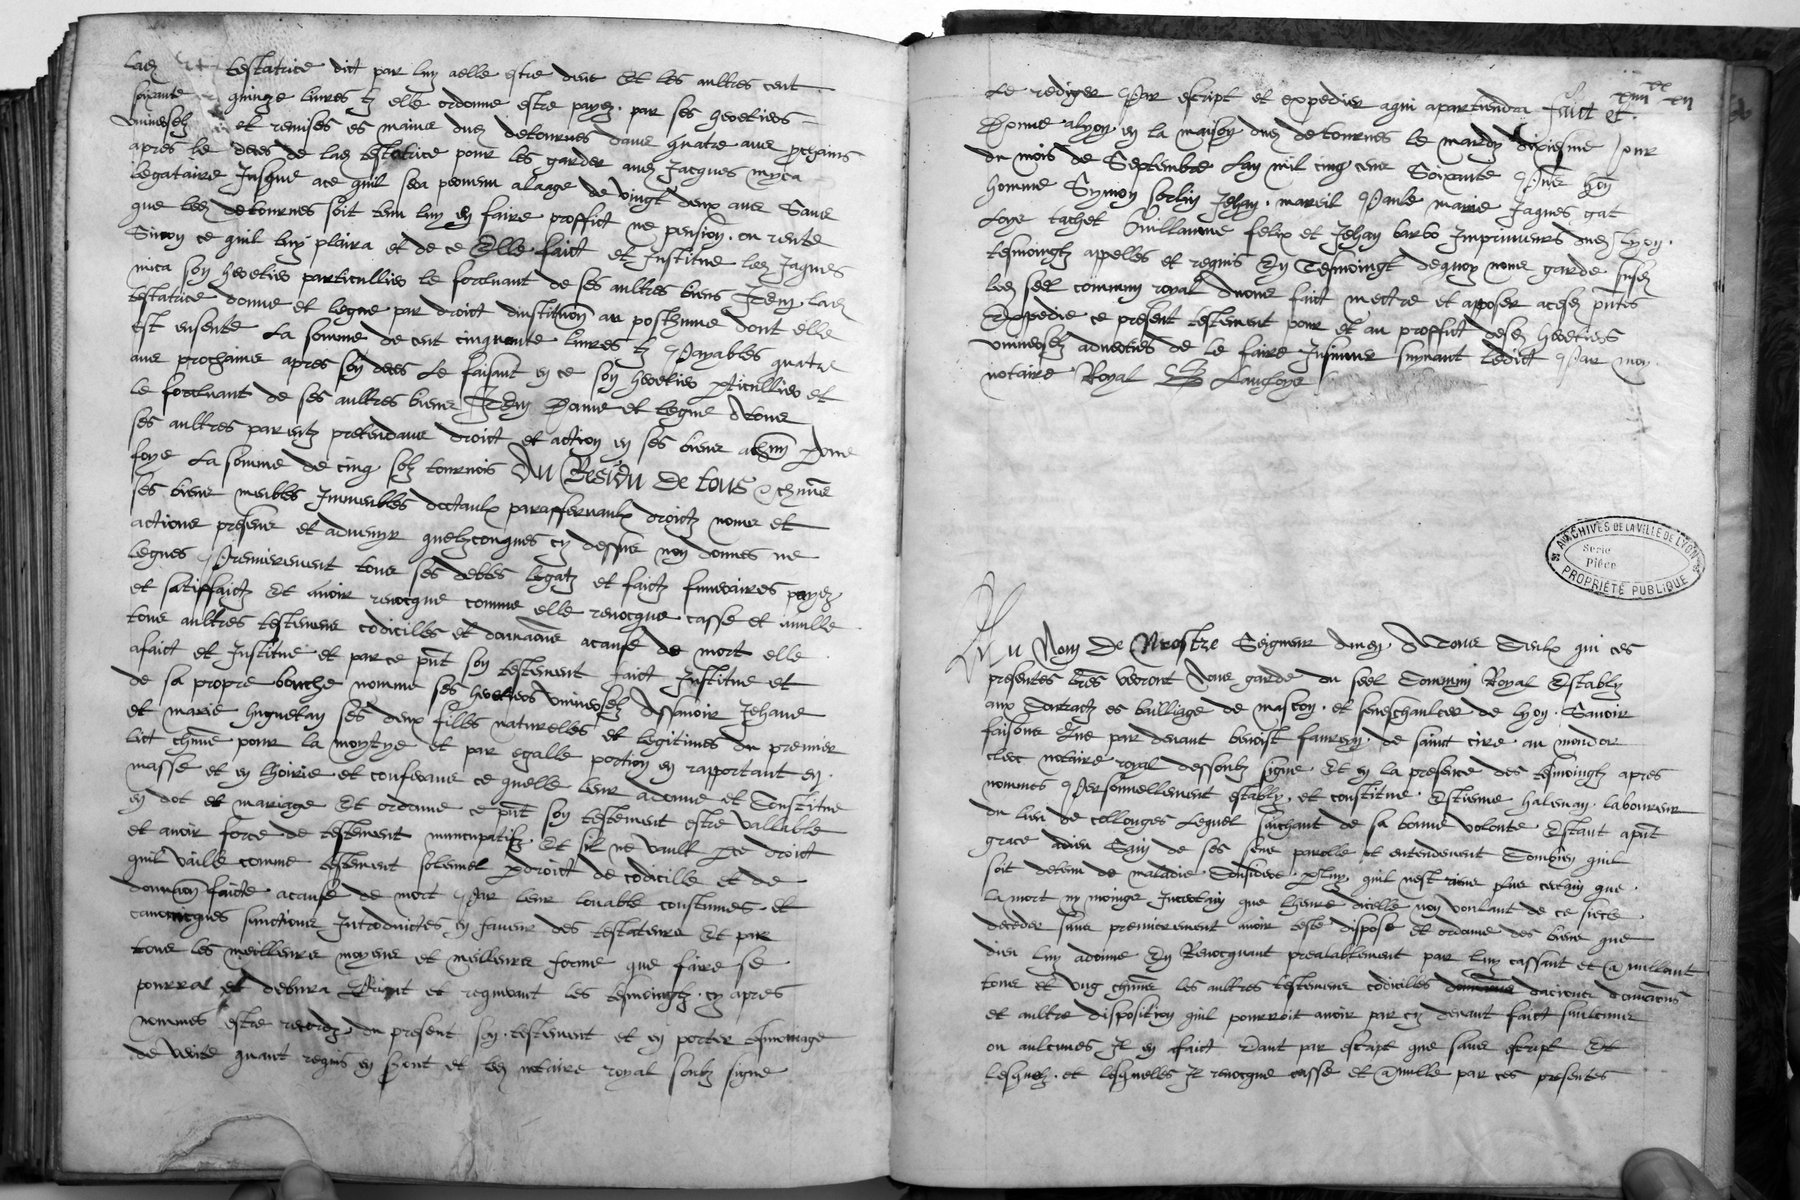 lad testatrice dict par luy a elle estre deue Et les aultres cent
soixante quinze livres tz elle ordonne estre payez par ses heretiers
universelz et remises es mains dud detournes dans quatre ans prochains
apres le deces de lad testatrice pour les garder aud Jacques myca
legataire Jusque ace quil sera parvenu a laage de vingt deux ans Sans
que led detournes soit tenu luy en faire proffict ne pension ou rente
Sinon ce quil luy plaira et de ce Elle faict et Institue led Jaques
mica son heretier particullier le forcluant de ses aultres biens Item lad
testatrice donne et legue par droict dinstitution au posthume dont elle
est ensente La somme de cent cinquante livres tz Payables quatre
ans prochains apres son deces Le faisant en ce son heretier pticullier et
le forcluant de ses aultres biens Item Donne et legue A tous
ses aultres parentz pretendans droict et action en ses biens a chun pour
foys La somme de cinq solz tournois Au Residu de tous & chuns
ses biens meubles Immeubles doctaulx paraffernaulx droictz noms et
actions presens et advenyr quelzconques cy dessus non donnes ne
legues Premierement tous ses debtes legatz et fraictz funeraires payez
et satisffaictz Et avoir revocque comme elle revocque casse et anulle
tous aultres testemens codicilles et donnations a cause de mort elle
afaict et Institue et par ce pnt son testement faict Institue et
de sa propre bouche nomme ses heretiers universelz Assavoir Jehanne
et marie huguetan ses deux filles naturelles et legitimes du premier
lict chune pour la moytye et par egalle portion en rapportant en
masse et en lhoirie et conferans ce quelle leur a donne et Constitue
en dot et mariage Et ordonne ce pnt son testement estre vallable
et avoir force de testement nuncupatif Et sil ne vault p ce droict
quil vaille comme testement solemnel p droict de codicille et de
donnaon faicte a cause de mort Par leur louable coustumes et
canonicques sanctions Introduictes en faveur des testateurs Et par
tous les meilleurs moyens et meilleure forme que faire se
pourra et debvra Priant et requerant les tesmoingtz cy apres
nommes estre recordz du present son testement et en porter tesmoinage
de verite quant requis en seront et led notaire royal soubz signe
Le rediger Par escript et expedier a qui apartiendra Faict et
Donne a lyon en la maison dud detournes le mardy dixiesme Jour
du mois de Septembre Lan mil cinq cens Soixante Pns hon
homme Symon sorlin Jehan mareil Paule marie Jaques gat
Loys tachet Guillaume felix et Jehan barbo Imprimeurs dud Lyon
tesmoingtz appelles et requis En Tesmoingt dequoy nous garde susd
led seel commun royal Avons faict mectre et apposer a cesd pntes
Expedie ce present testement pour et au proffict desd heretiers
universelz advertis de le faire Insinuer suyvant ledict Par moy
notaire Royal
Au Nom De Nostre Seigneur Amen A Tous Ceulx qui ces
presentes lres verront Nous garde du seel Commun Royal Estably
aux Contractz es bailliage de mascon et seneschaulcee de lyon Savoir
faisons Que par devant benoist faureyn de sainct cire au mondor
clerc notaire royal dessoubz signe Et en la presence des tesmoingtz apres
nommes Personnellement estably et constitue Estienne haleman laboureur
du lieu de collonges Lequel saichant de sa bonne volonte Estant apnt
grace a dieu Sain de ses sens parolle et entendement Combien quil
soit detenu de maladie Considere p luy quil nest riens plus certain que
la mort ny moings Incertain que lheure dicelle non voulant de ce siecle
deceder sans premierement avoir teste dispose et ordonne des biens que
dieu luy a donne En Revocquant prealablement par luy cassant et anullant
tous et ung chuns les aultres testemens codicilles donnaons
et aultre disposition quil pourroit avoir par cy devant faict saulcunes
ou aulcunes Il en a faict tant par escript que sans escript Et
lesquelz et lesquelles Il revocque casse et anulle par ces presentes
ARCHIVES DE LA VILLE DE LYON
Série
Pièce
PROPRIÉTÉ PUBLIQUE